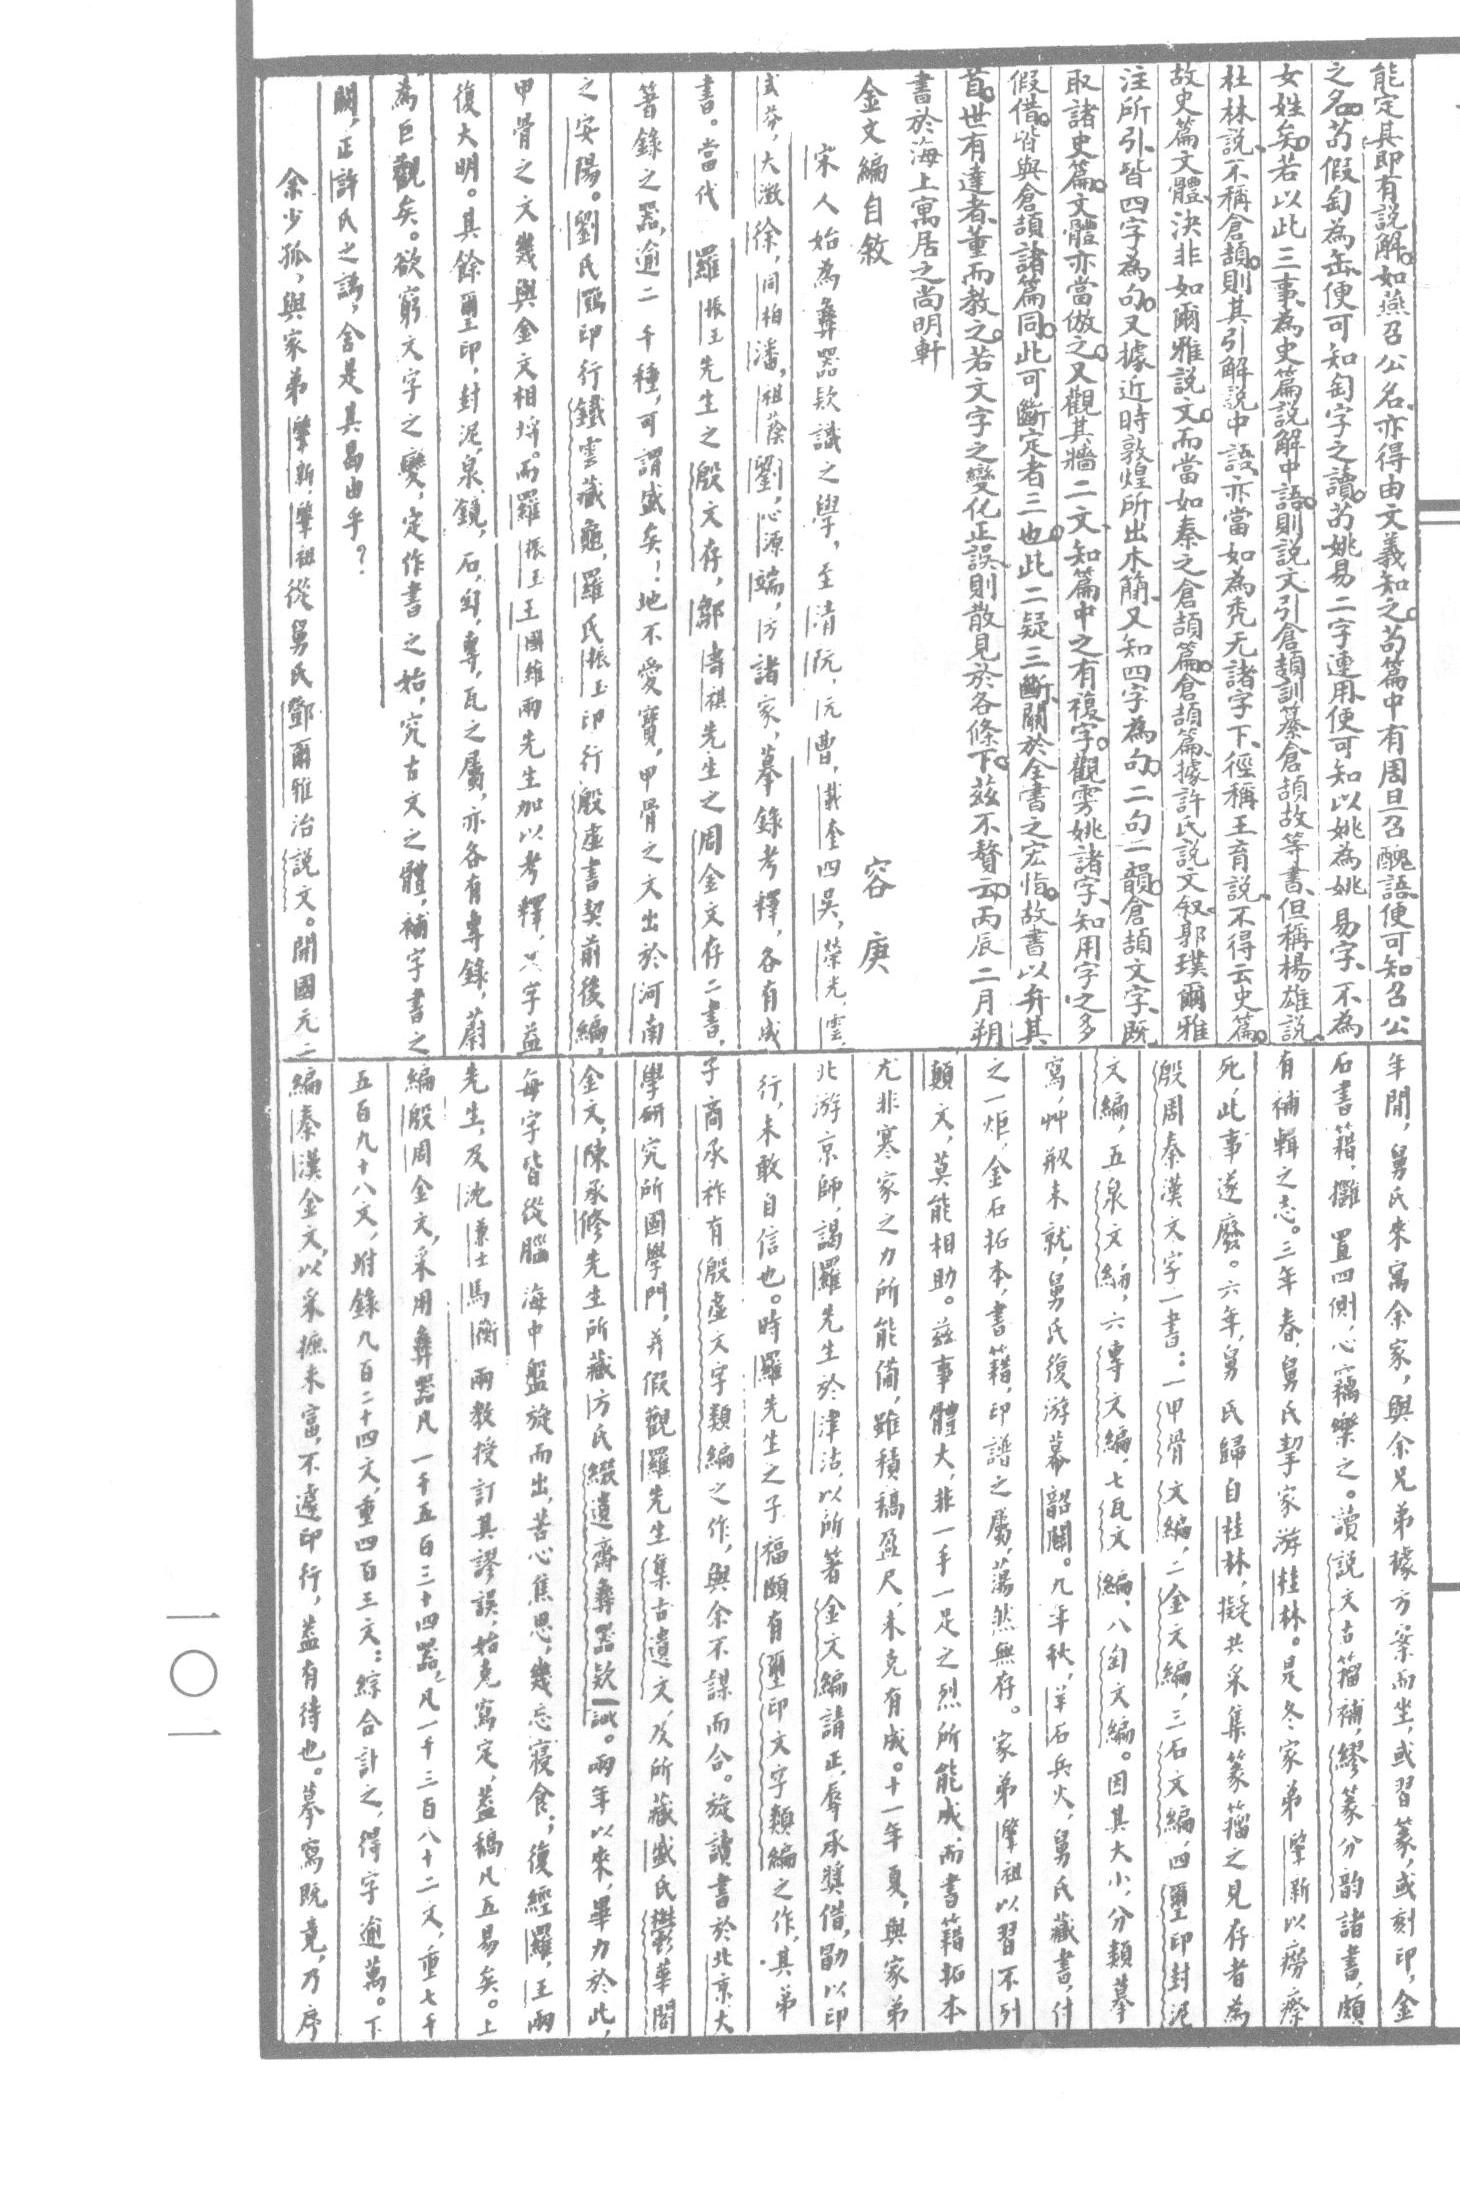 能定其即有説解。如燕召公名、亦得由文義知之。苟篇中有周旦召醜語、便可知召公
之名。苟假匋為缶、便可知匋字之讀。苟姚易二字連用、便可知以姚為姚易字、不為
女姓矣。若以此三事、為史篇説解中語。則説文引倉頡訓纂倉頡故等書、但稱楊雄説
杜林説、不稱倉頡。則其引解説中語、亦當如為禿无諸字下、徑稱王育説、不得云史篇。
故史篇文體、決非如爾雅説文。而當如秦之倉頡篇。倉頡篇、據許氏説文叙、郭璞爾雅
注所引、皆四字為句。又據近時敦煌所出木簡、又知四字為句。二句一韻。倉頡文字、既
取諸史篇。文體亦當倣之。又觀其牆二文、知篇中之有複字。觀雱姚諸字、知用字之多
假借。皆與倉頡諸篇同。此可斷定者三也。此二疑三斷、關於全書之宏恉。故書以弁其
首。世有達者、董而教之。若文字之變化正誤、則散見於各條下。茲不贅云。丙辰二月朔
書於海上寓居之尚明軒
金文編自敘 容庚
宋人始為彝器欵識之學，至清阮，元曹，載奎四吳，榮光，雲，
式芬，大澂徐，同柏潘，祖蔭劉，心源端，方諸家，摹錄考釋，各有成
書。當代 羅振玉先生之殷文存，鄒壽祺先生之周金文存二書，
箸錄之器，逾二千種，可謂盛矣！地不愛寶，甲骨之文出於河南
之安陽。劉氏鶚印行鐵雲藏龜，羅氏振玉印行殷虛書契前後編，
甲骨之文幾與金文相埒。而羅振玉王國維兩先生加以考釋，其字益
復大明。其餘璽印，封泥，泉，鏡，石，匋，專，瓦之屬，亦各有專錄，蔚
為巨觀矣。欲窮文字之變，定作書之始，究古文之體，補字書之
闕，正許氏之譌，舍是其曷由乎？
余少孤，與家弟肇新，肇祖從舅氏鄧爾雅治説文。開國元二
年閒，舅氏來寓余家，與余兄弟據方案而坐，或習篆，或刻印，金
石書籍，攤置四側，心竊樂之。讀説文古籀補，繆篆分韵諸書，頗
有補輯之志。三年春，舅氏挈家游桂林。是冬家弟肇新以癆瘵
死，此事遂廢。六年，舅氏歸自桂林，擬共采集篆籀之見存者為
殷周秦漢文字一書：一甲骨文編，二金文編，三石文編，四璽印封泥
文編，五泉文編，六專文編，七瓦文編，八匋文編。因其大小，分類摹
寫，艸剏未就，舅氏復游幕韶關。九年秋，羊石兵火，舅氏藏書，付
之一炬，金石拓本，書籍，印譜之屬，蕩然無存。家弟肇祖以習不列
顛文，莫能相助。茲事體大，非一手一足之烈所能成，而書籍拓本
尤非寒家之力所能備，雖積稿盈尺，未克有成。十一年夏，與家弟
北游京師，謁羅先生於津沽，以所著金文編請正，辱承獎借，勖以印
行，未敢自信也。時羅先生之子福頤有璽印文字類編之作，其弟
子商承祚有殷虛文字類編之作，與余不謀而合。旋讀書於北京大
學研究所國學門，并假觀羅先生集古遺文，及所藏盛氏鬱華閣
金文，陳承修先生所藏方氏綴遺齋彝器欵識。兩年以來，畢力於此，
每字皆從腦海中盤旋而出，苦心焦思，幾忘寢食；復經羅，王兩
先生，及沈兼士馬衡兩教授訂其謬誤，始克寫定，蓋稿凡五易矣。上
編殷周金文，采用彝器凡一千五百三十四器，凡一千三百八十二文，重七千
五百九十八文，附錄九百二十四文，重四百三文：綜合計之，得字逾萬。下
編秦漢金文，以采摭未富，不遽印行，蓋有待也。摹寫既竟，乃序
一〇一